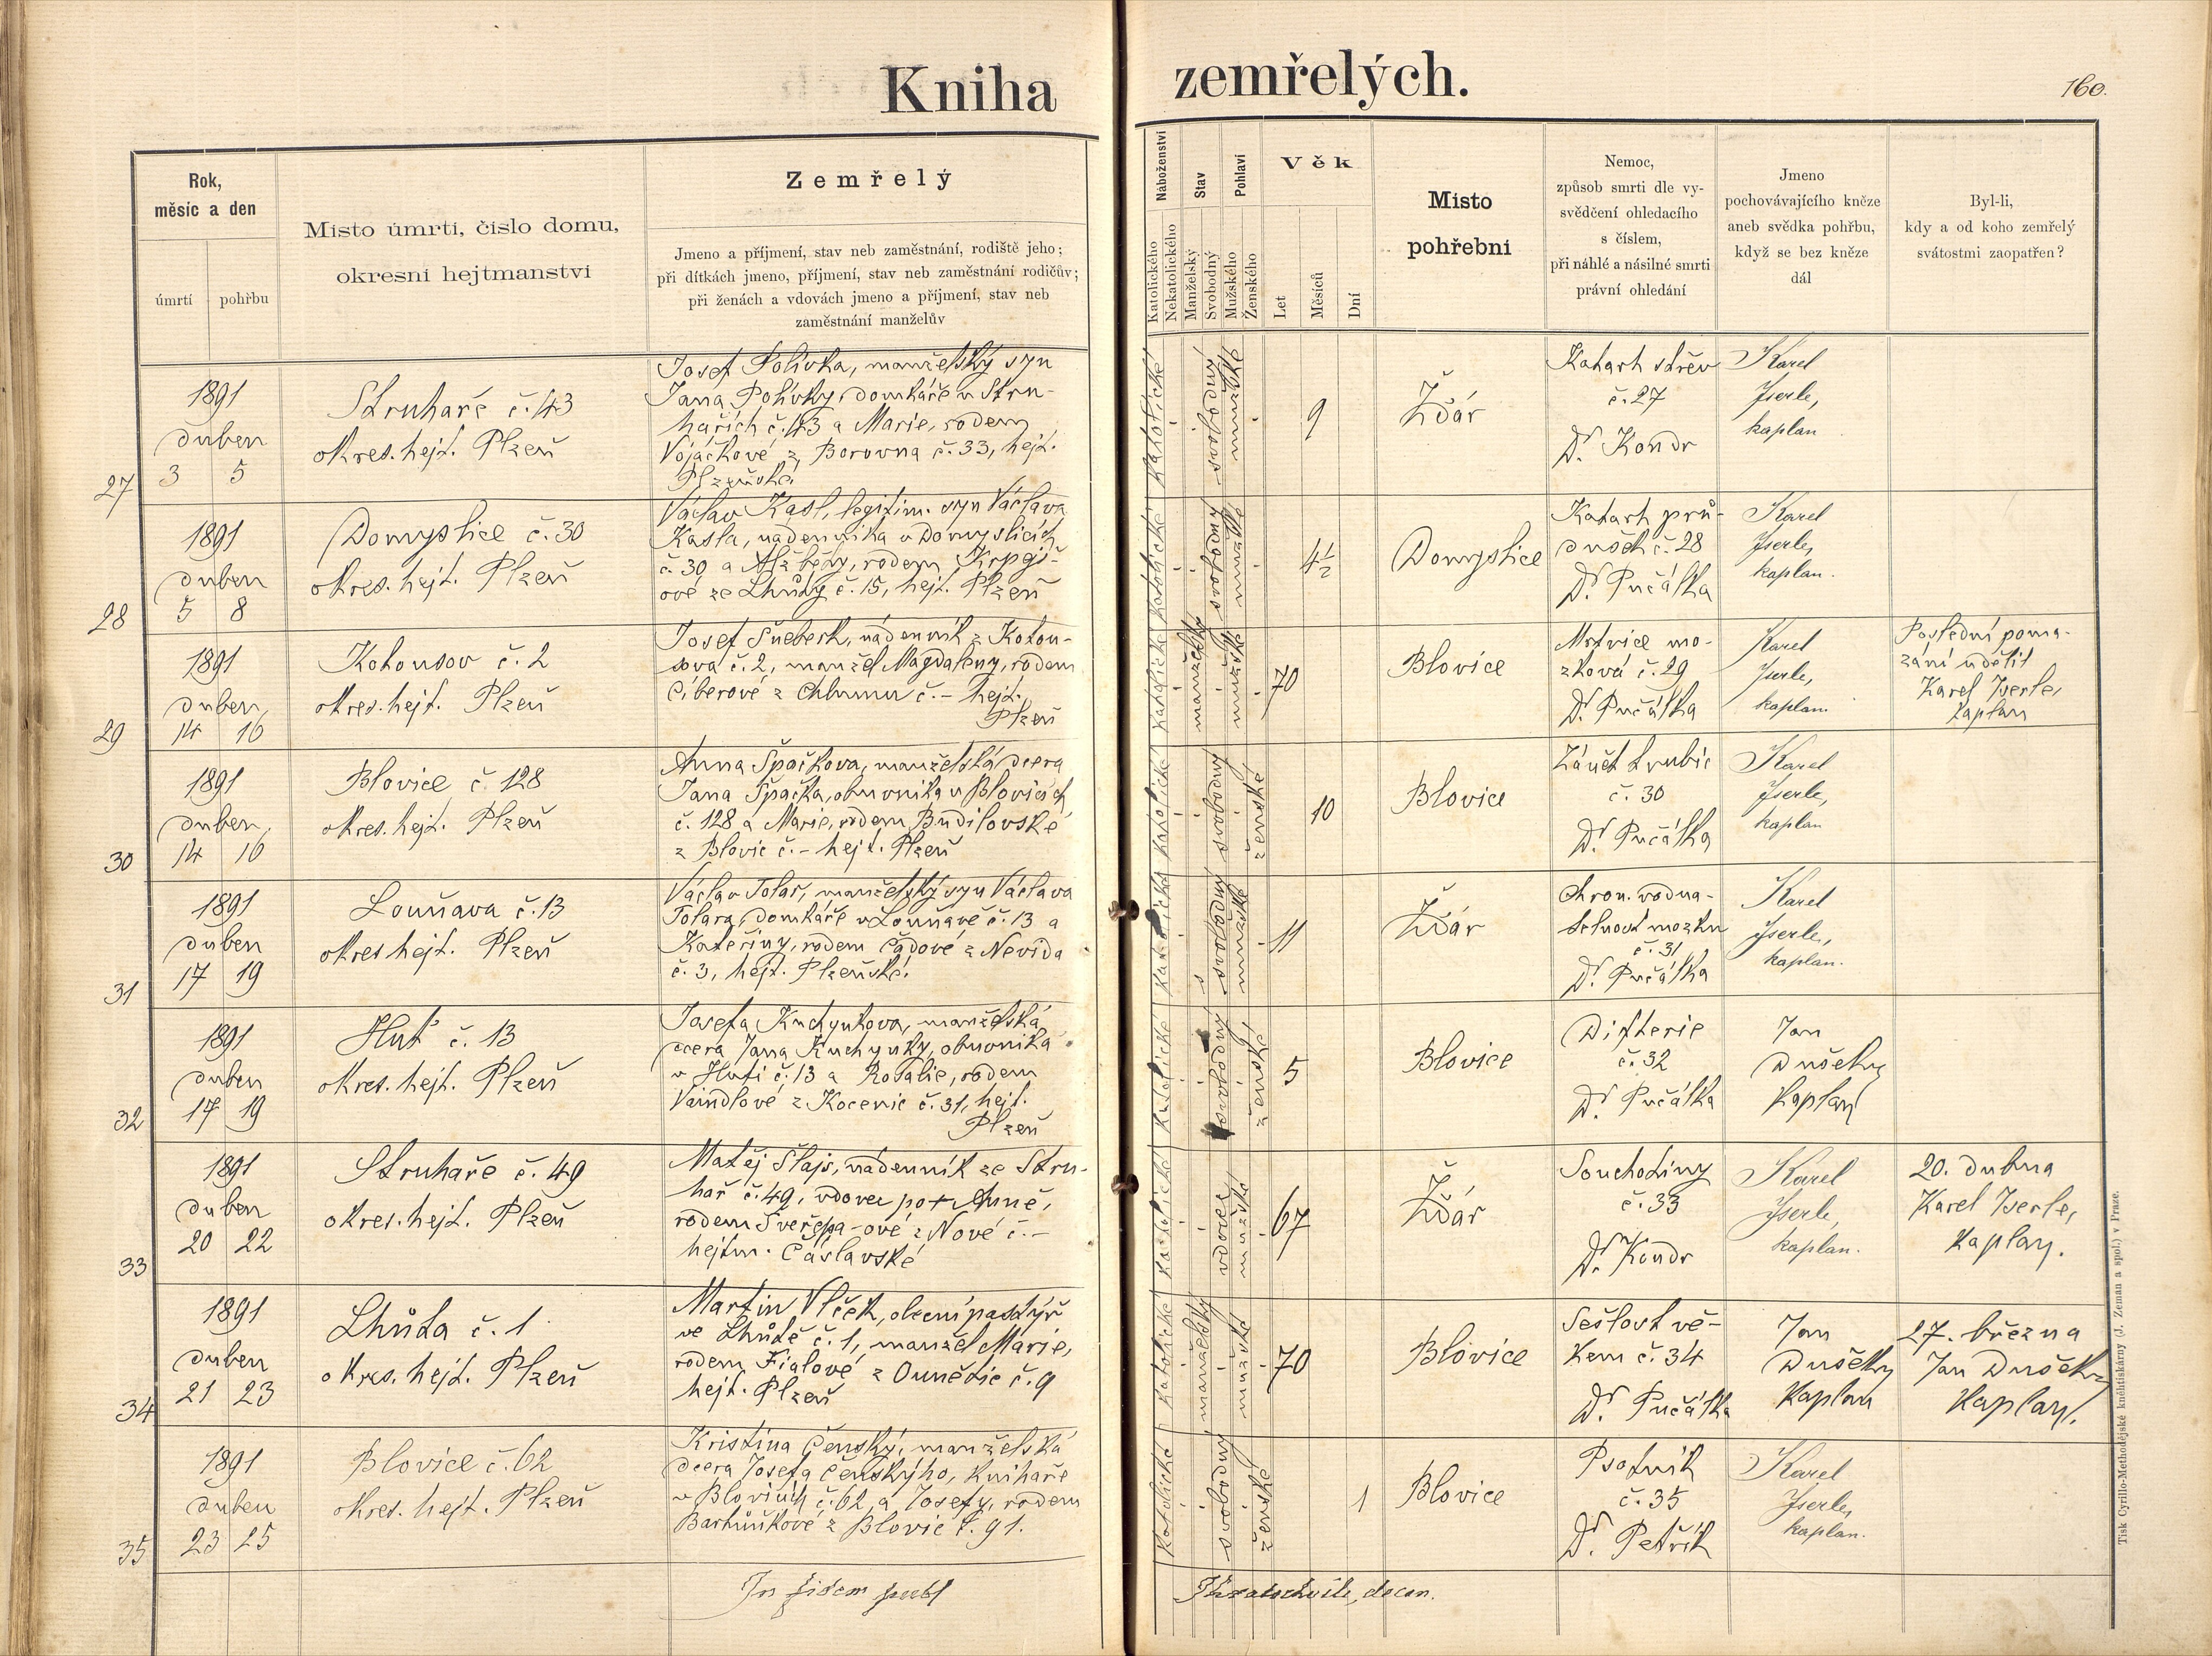 Kniha zemřelých.
160.
Rok,
měsíc a den
úmrtí
pohřbu
Místo úmrtí, číslo domu,
okresní hejtmanství
Zemřelý
Jmeno a příjmení, stav neb zaměstnání, rodiště jeho;
při dítkách jmeno, příjmení, stav neb zaměstnání rodičův;
při ženách a vdovách jmeno a příjmení, stav neb
zaměstnání manželův
Náboženství
Katolického
Nekatolického
Stav
Manželský
Svobodný
Pohlaví
Mužského
Ženského
Věk
Let
Měsíců
Dní
Místo
pohřební
Nemoc,
způsob smrti dle vy-
svědčení ohledacího
s číslem,
při náhlé a násilné smrti
právní ohledání
Jmeno
pochovávajícího kněze
aneb svědka pohřbu,
když se bez kněze
dál
Byl-li,
kdy a od koho zemřelý
svátostmi zaopatřen?
27
1891
duben
3 5
Struhaře č. 43
okres. hejt. Plzeň
Josef Polívka, manželský syn
Jana Polívky, domkáře v Stru-
hařích č. 43 a Marie, rodem
Vojáčkové z Borovna č. 33, hejt.
Plzeňské.
katolické
svobodný
mužské
9
Ždár
Katarh střev
č. 27
Dr. Kondr
Karel
Iserle,
kaplan
28
1891
duben
5 8
Domyslice č. 30
okres. hejt. Plzeň
Václav Kasl, legitim. syn Václava
Kasla, nádenníka v Domyslicích
č. 30 a Alžběty, rodem Krpejš-
ové ze Lhůty č. 15, hejt. Plzeň
katolické
svobodný
mužské
4½
Domyslice
Katarh prů-
dušek č. 28
Dr. Pučálka
Karel
Iserle,
kaplan.
29
1891
duben,
14 16
Kotousov č. 2
okres. hejt. Plzeň
Josef Šneberk, nádenník z Kotou-
sova č. 2, manžel Magdaleny, rodem
Ciberové z Chlumu č. – hejt.
Plzeň
katolické
manželský
mužské
70
Blovice
Mrtvice mo-
zková č. 29
Dr. Pučálka
Karel
Iserle,
kaplan.
Poslední poma-
zání udělil
Karel Iserle,
kaplan
30
1891
duben,
14 16
Blovice č. 128
okres. hejt. Plzeň
Anna Špačkova, manželská dcera
Jana Špačka, obuvníka v Blovicích
č. 128 a Marie, rodem Budilovské
z Blovic č. – hejt. Plzeň
katolické
svobodný
ženské
10
Blovice
Zánět trubic
č. 30
Dr. Pučálka
Karel
Iserle,
kaplan
31
1891
duben
17 19
Louňava č. 13
okres hejt. Plzeň
Václav Tolar, manželský syn Václava
Tolara, domkáře v Louňavě č. 13 a
Kateřiny, rodem Čádové z Nevida
č. 3, hejt. Plzeňské.
katolické
svobodný
mužské
11
Ždár
Chron. vodna-
telnost mozku
č. 31
Dr. Pučálka
Karel
Iserle,
kaplan.
32
1891
duben
17 19
Huť č. 13
okres. hejt. Plzeň
Josefa Kuchynkova, manželská
dcera Jana Kuchynky, obuvníka
v Huti č. 13 a Rosalie, rodem
Vaindlové z Kocenic č. 31, hejt.
Plzeň
katolické
svobodný
ženské
5
Blovice
Difterie
č. 32
Dr. Pučálka
Jan
Dušek,
Kaplan
33
1891
duben
20 22
Struhaře č. 49
okres. hejt. Plzeň
Matěj Šlajs, nádenník ze Stru-
hař č. 49, vdovec po † Anně,
rodem Sveřepa-ové z Nové č. –
hejtm. Cáslavské
katolické
vdovec
mužské
67
Ždár
Souchotiny
č. 33
Dr. Kondr
Karel
Iserle,
kaplan.
20. dubna
Karel Iserle,
kaplan.
34
1891
duben
21 23
Lhůta č. 1
okres. hejt. Plzeň
Martin Vlček, obecní pastýř
ve Lhůtě č. 1, manžel Marie,
rodem Fialové z Ounětic č. 9
hejt. Plzeň
katolické
manželský
mužské
70
Blovice
Sešlost vě-
kem č. 34
Dr. Pučálka
Jan
Dušek,
Kaplan
27. března
Jan Dušek,
Kaplan.
35
1891
duben
23 25
Blovice č. 62
okres. hejt. Plzeň
Kristina Čenský, manželská
dcera Josefa Čenskýho, knihaře
v Blovicích č. 62, a Josefy, rodem
Bartůňkové z Blovic č. 91.
katolické
svobodný
ženské
1
Blovice
Psotník
č. 35
Dr. Petřík
Karel
Iserle,
kaplan.
In fidem publ
decan.
Tisk Cyrillo-Methodějské knihtiskárny (J. Zeman a spol.) v Praze.